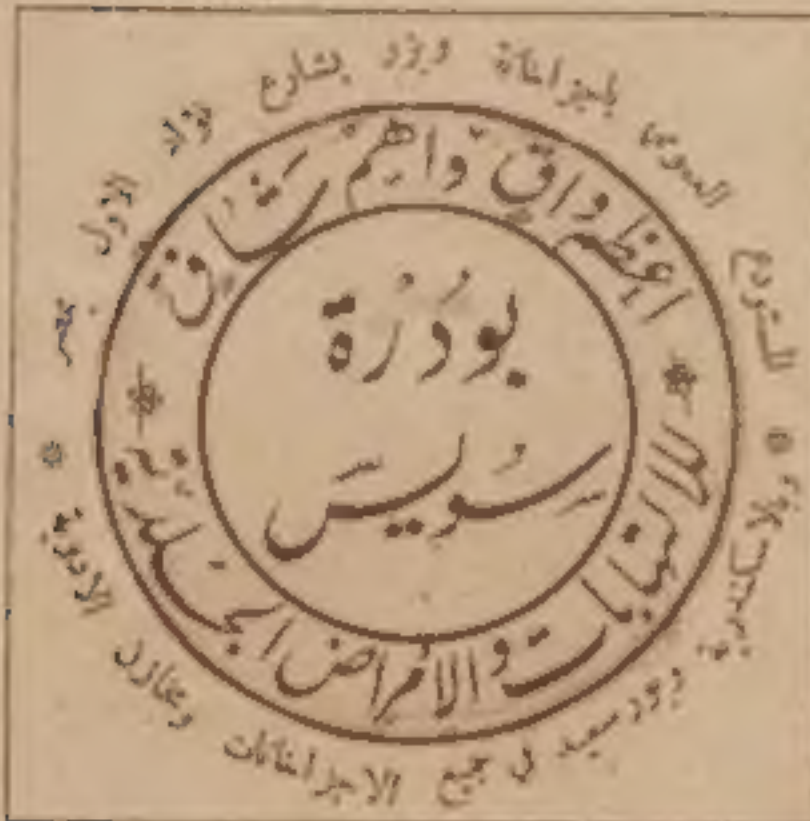 بودرة
سويس
اعظم واق واهم شاف
للالتهابات والامراض الجلدية
المستودع العمومى باجزاخانة ويزر بشارع فؤاد الاول بمصر
وبالاسكندرية وبورسعيد فى جميع الاجزاخانات ومخازن الادوية